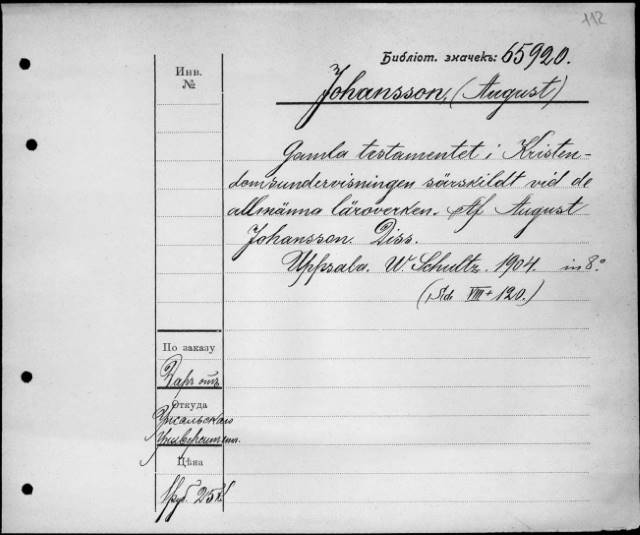 112
Библіот. значекъ: 65920.
Инв.
№
Johansson, (August)
Gamla testamentet i Kristen-
domsundervisningen särskildt vid de
allmänna läroverken. Af August
Johansson. Diss.
Uppsala. W. Schultz. 1904. in 8°
(Sid. VIII + 120.)
По заказу
Даръ отъ
Откуда
Упсальскаго
Университета.
Цѣна
1 руб. 25 к.